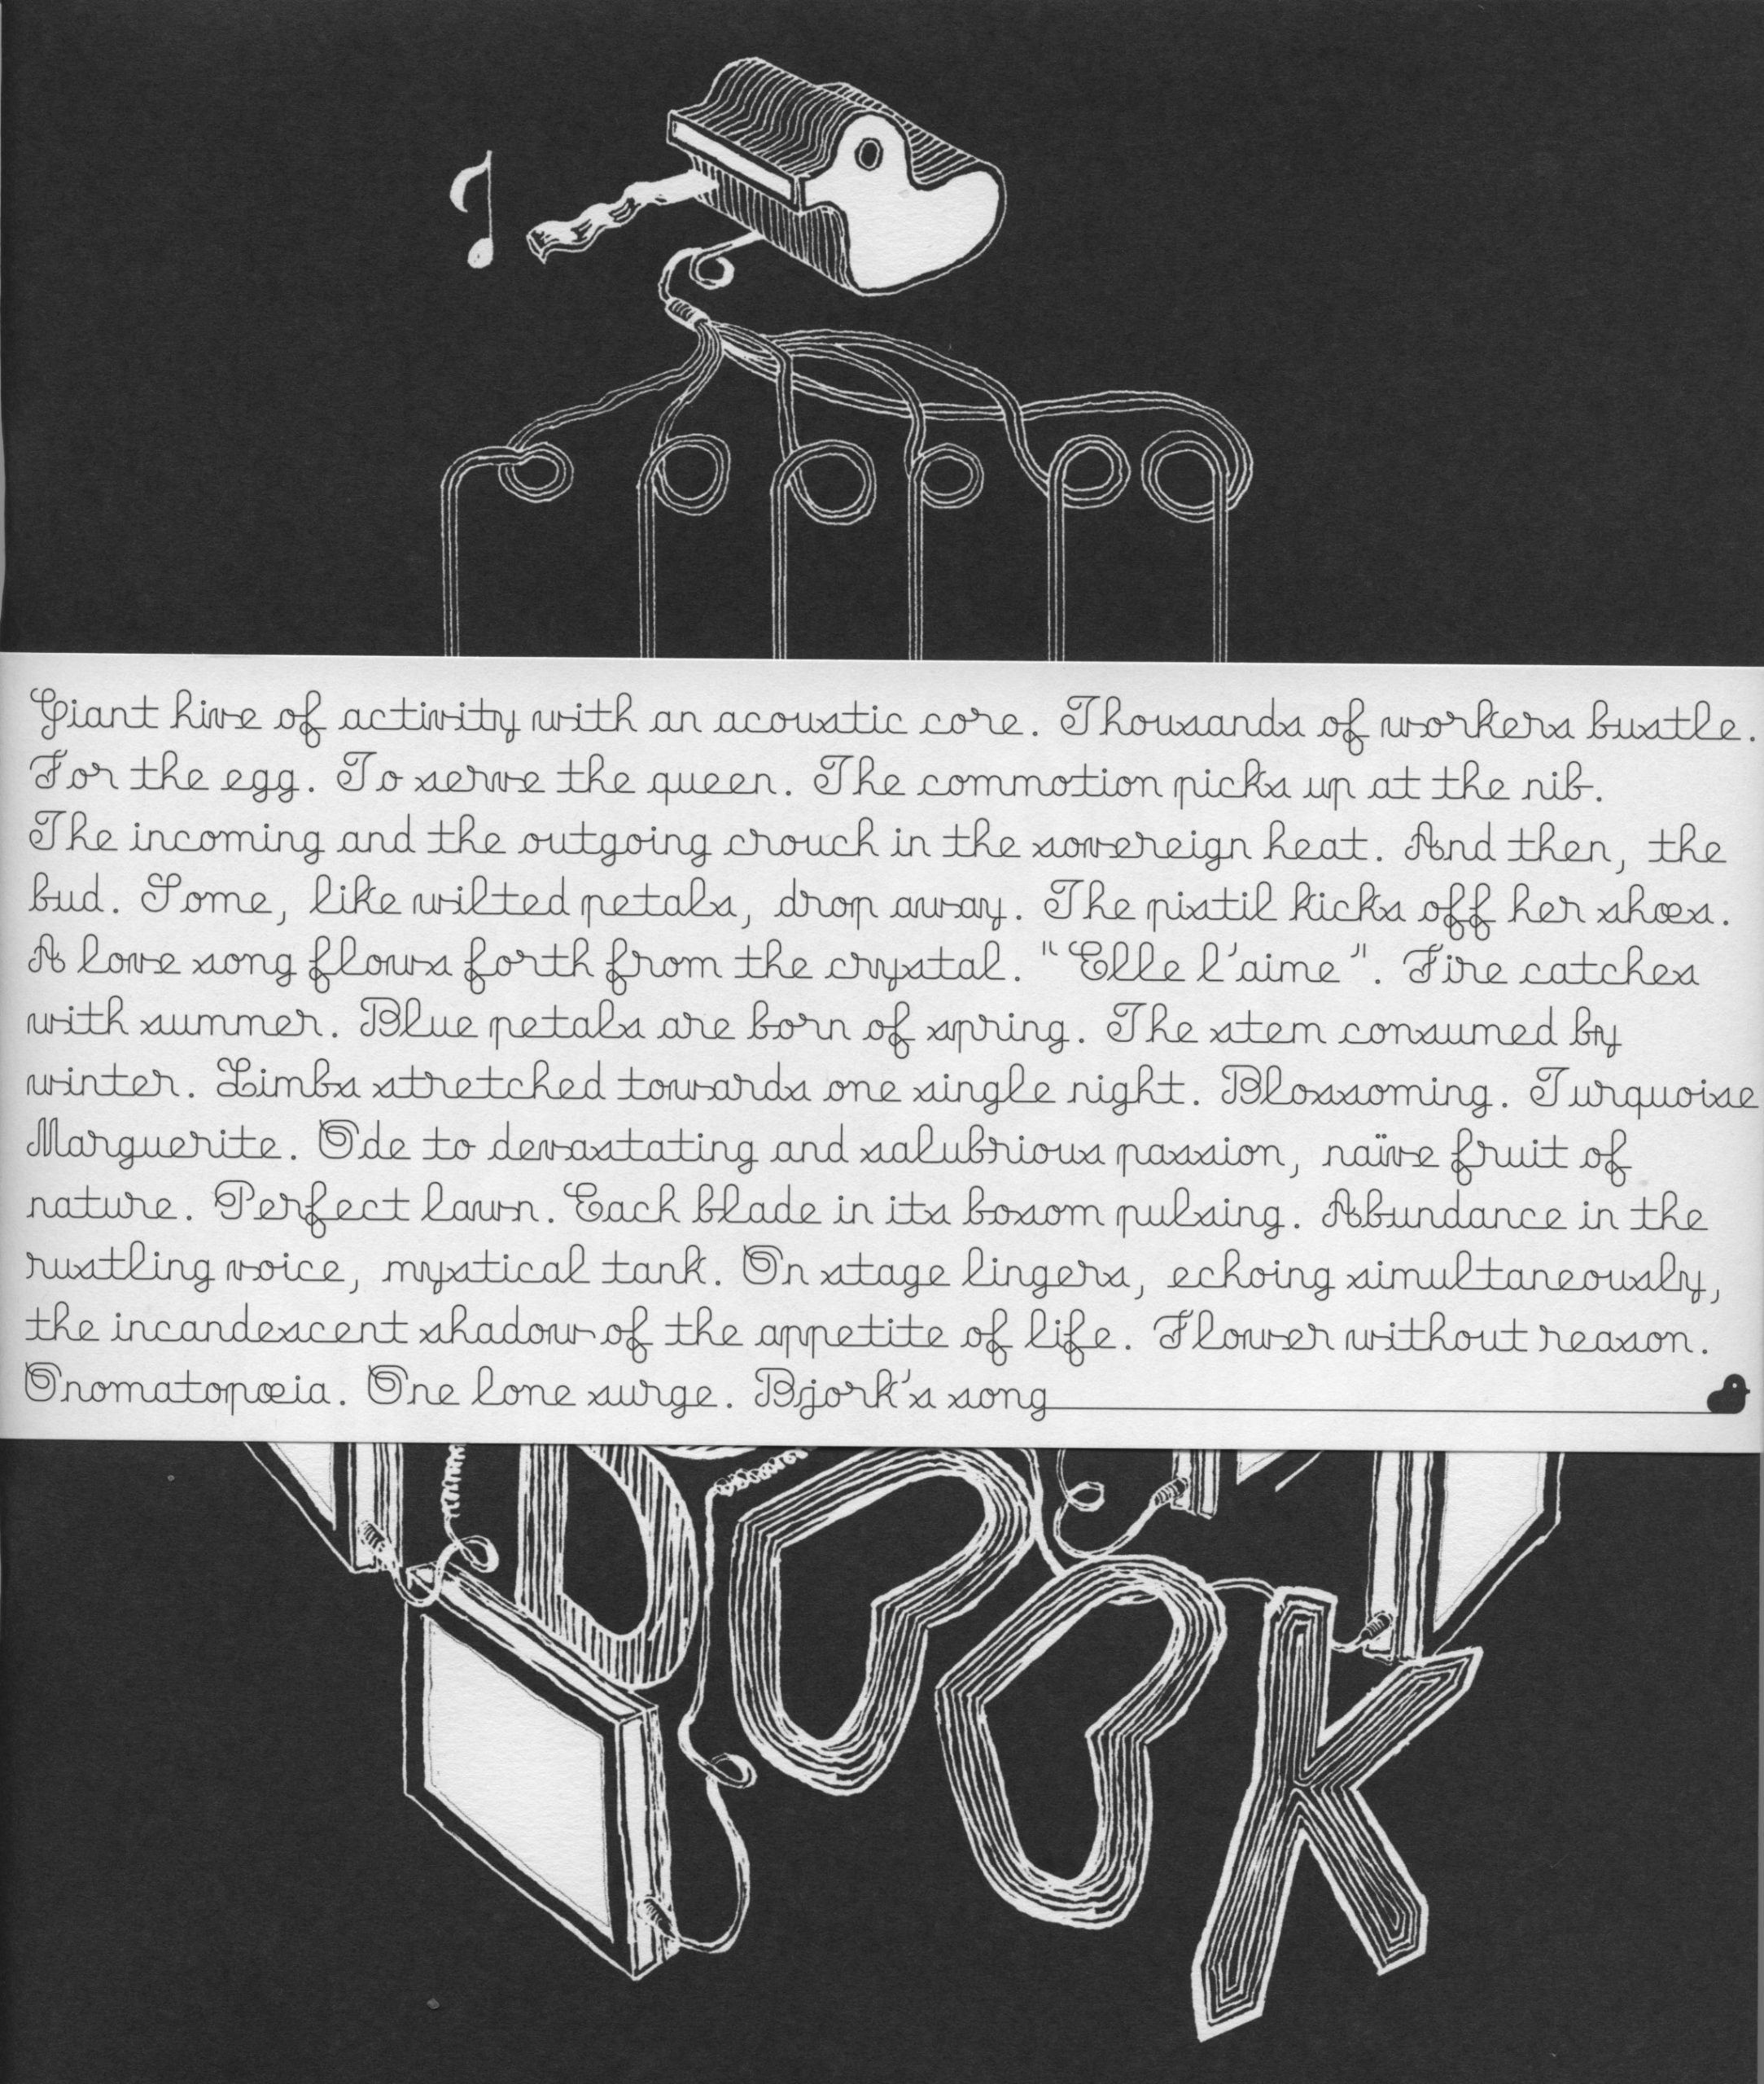 Giant hive of activity with an acoustic core. Thousands of workers bustle.
For the egg. To serve the queen. The commotion picks up at the nib.
The incoming and the outgoing crouch in the sovereign heat. And then, the
bud. Some, like wilted petals, drop away. The pistil kicks off her shœs.
A love song flows forth from the crystal. "Elle l'aime". Fire catches
with summer. Blue petals are born of spring. The stem consumed by
winter. Limbs stretched towards one single night. Blossoming. Turquoise
Marguerite. Ode to devastating and salubrious passion, naïve fruit of
nature. Perfect lawn. Each blade in its bosom pulsing. Abundance in the
rustling voice, mystical tank. On stage lingers, echoing simultaneously,
the incandescent shadow of the appetite of life. Flower without reason.
Onomatopœia. One lone surge. Bjork's song